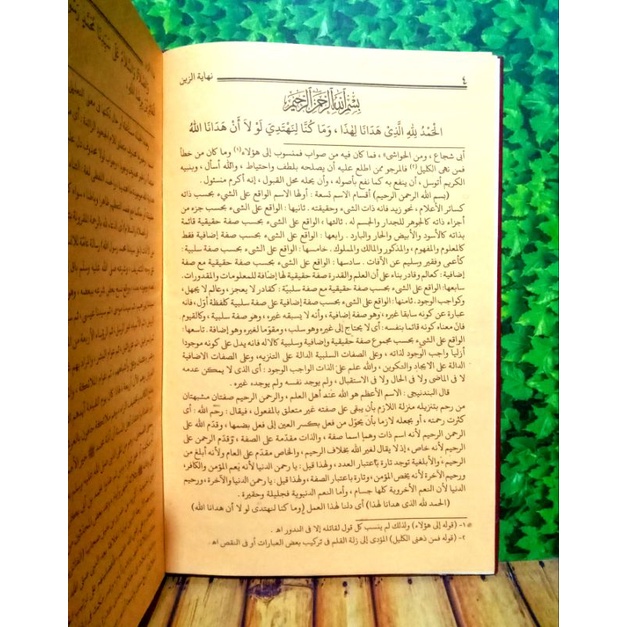 ٤
نهاية الزين
بسم الله الرحمن الرحيم
الحَمْدُ لِلهِ الَّذِى هَدَانَا لِهٰذَا ، وَمَا كُنَّا لِنَهْتَدِيَ لَوْ لَا أَنْ هَدَانَا اللهُ
أبى شجاع ، ومن الحواشى ، فما كان فيه من صواب فمنسوب إلى هؤلاء (١) وما كان من خطأ
فمن ذهنى الكليل (٢) فالمرجو ممن اطلع عليه أن يصلحه بلطف واحتياط ، والله أسأل ، وبنبيه
الكريم أتوسل ، أن ينفع به كما نفع بأصوله ، وأن يجعله محل القبول ، إنه أكرم مسئول .
(بسم الله الرحمن الرحيم) أقسام الاسم تسعة : أولها الاسم الواقع على الشىء بحسب ذاته
كسائر الأعلام ، نحو زيد فإنه ذات الشىء وحقيقته . ثانيها : الواقع على الشىء بحسب جزء من
أجزاء ذاته كالجوهر للجدار والجسم له . ثالثها : الواقع على الشىء بحسب صفة حقيقية قائمة
بذاته كالأسود والأبيض والحار والبارد . رابعها : الواقع على الشىء بحسب صفة إضافية فقط
كالمعلوم والمفهوم ، والمذكور والمالك والمملوك . خامسها : الواقع على الشىء بحسب صفة سلبية :
كأعمى وفقير وسليم عن الآفات . سادسها : الواقع على الشىء بحسب صفة حقيقية مع صفة
إضافية : كعالم وقادر بناء على أن العلم والقدرة صفة حقيقية لها إضافة للمعلومات والمقدورات .
سابعها : الواقع على الشىء بحسب صفة حقيقية مع صفة سلبية : كقادر لا يعجز ، وعالم لا يجهل ،
وكواجب الوجود . ثامنها : الواقع على الشىء بحسب صفة إضافية مع صفة سلبية كلفظة أوّل ، فإنه
عبارة عن كونه سابقا غيره ، وهو صفة إضافية ، وأنه لا يسبقه غيره ، وهو صفة سلبية ، وكالقيوم
فإنّ معناه كونه قائما بنفسه : أى لا يحتاج إلى غيره وهو سلب ، ومقوّما لغيره ، وهو إضافة . تاسعها :
الواقع على الشىء بحسب مجموع صفة حقيقية وإضافية وسلبية كالاله فانه يدل على كونه موجودا
أزليا واجب الوجود لذاته ، وعلى الصفات السلبية الدالة على التنزيه ، وعلى الصفات الاضافية
الدالة على الايجاد والتكوين ، والله علم على الذات الواجب الوجود : أى الذى لا يمكن عدمه
لا فى الماضى ولا فى الحال ولا فى الاستقبال ، ولم يوجد نفسه ولم يوجده غيره .
قال البندنيجى : الاسم الأعظم هو الله عند أهل العلم ، والرحمن الرحيم صفتان مشبهتان
من رحم بتنزيله منزلة اللازم بأن يبقى على صفته غير متعلق بالمفعول ، فيقال : رحم الله : أى
كثرت رحمته ، أو بجعله لازما بأن يحوّل من فعل بكسر العين إلى فعل بضمها ، وقدم الله على
الرحمن الرحيم لأنه اسم ذات وهما اسما صفة ، والذات مقدّمة على الصفة ، وقدّم الرحمن على
الرحيم لأنه خاص ، إذ لا يقال لغير الله بخلاف الرحيم ، والخاص مقدم على العام ، ولأنه أبلغ من
الرحيم ، والأبلغية توجد تارة باعتبار العدد ، ولهذا قيل : يا رحمن الدنيا لأنه يعم المؤمن والكافر ،
ورحيم الآخرة لأنه يخص المؤمن وتارة باعتبار الصفة ، ولهذا قيل : يا رحمن الدنيا والآخرة ، ورحيم
الدنيا لأن النعم الأخروية كلها جسام ، وأما النعم الدنيوية فجليلة وحقيرة .
(الحمد لله الذى هدانا لهذا) أى دلنا لهذا العمل (وما كنا لنهتدى لو لا أن هدانا الله)
١- (قوله إلى هؤلاء) ولذلك لم ينسب كل قول لقائله إلا فى الندور اه .
٢- (قوله فمن ذهنى الكليل) المؤدى إلى زلة القلم فى تركيب بعض العبارات أو فى النقص اه .